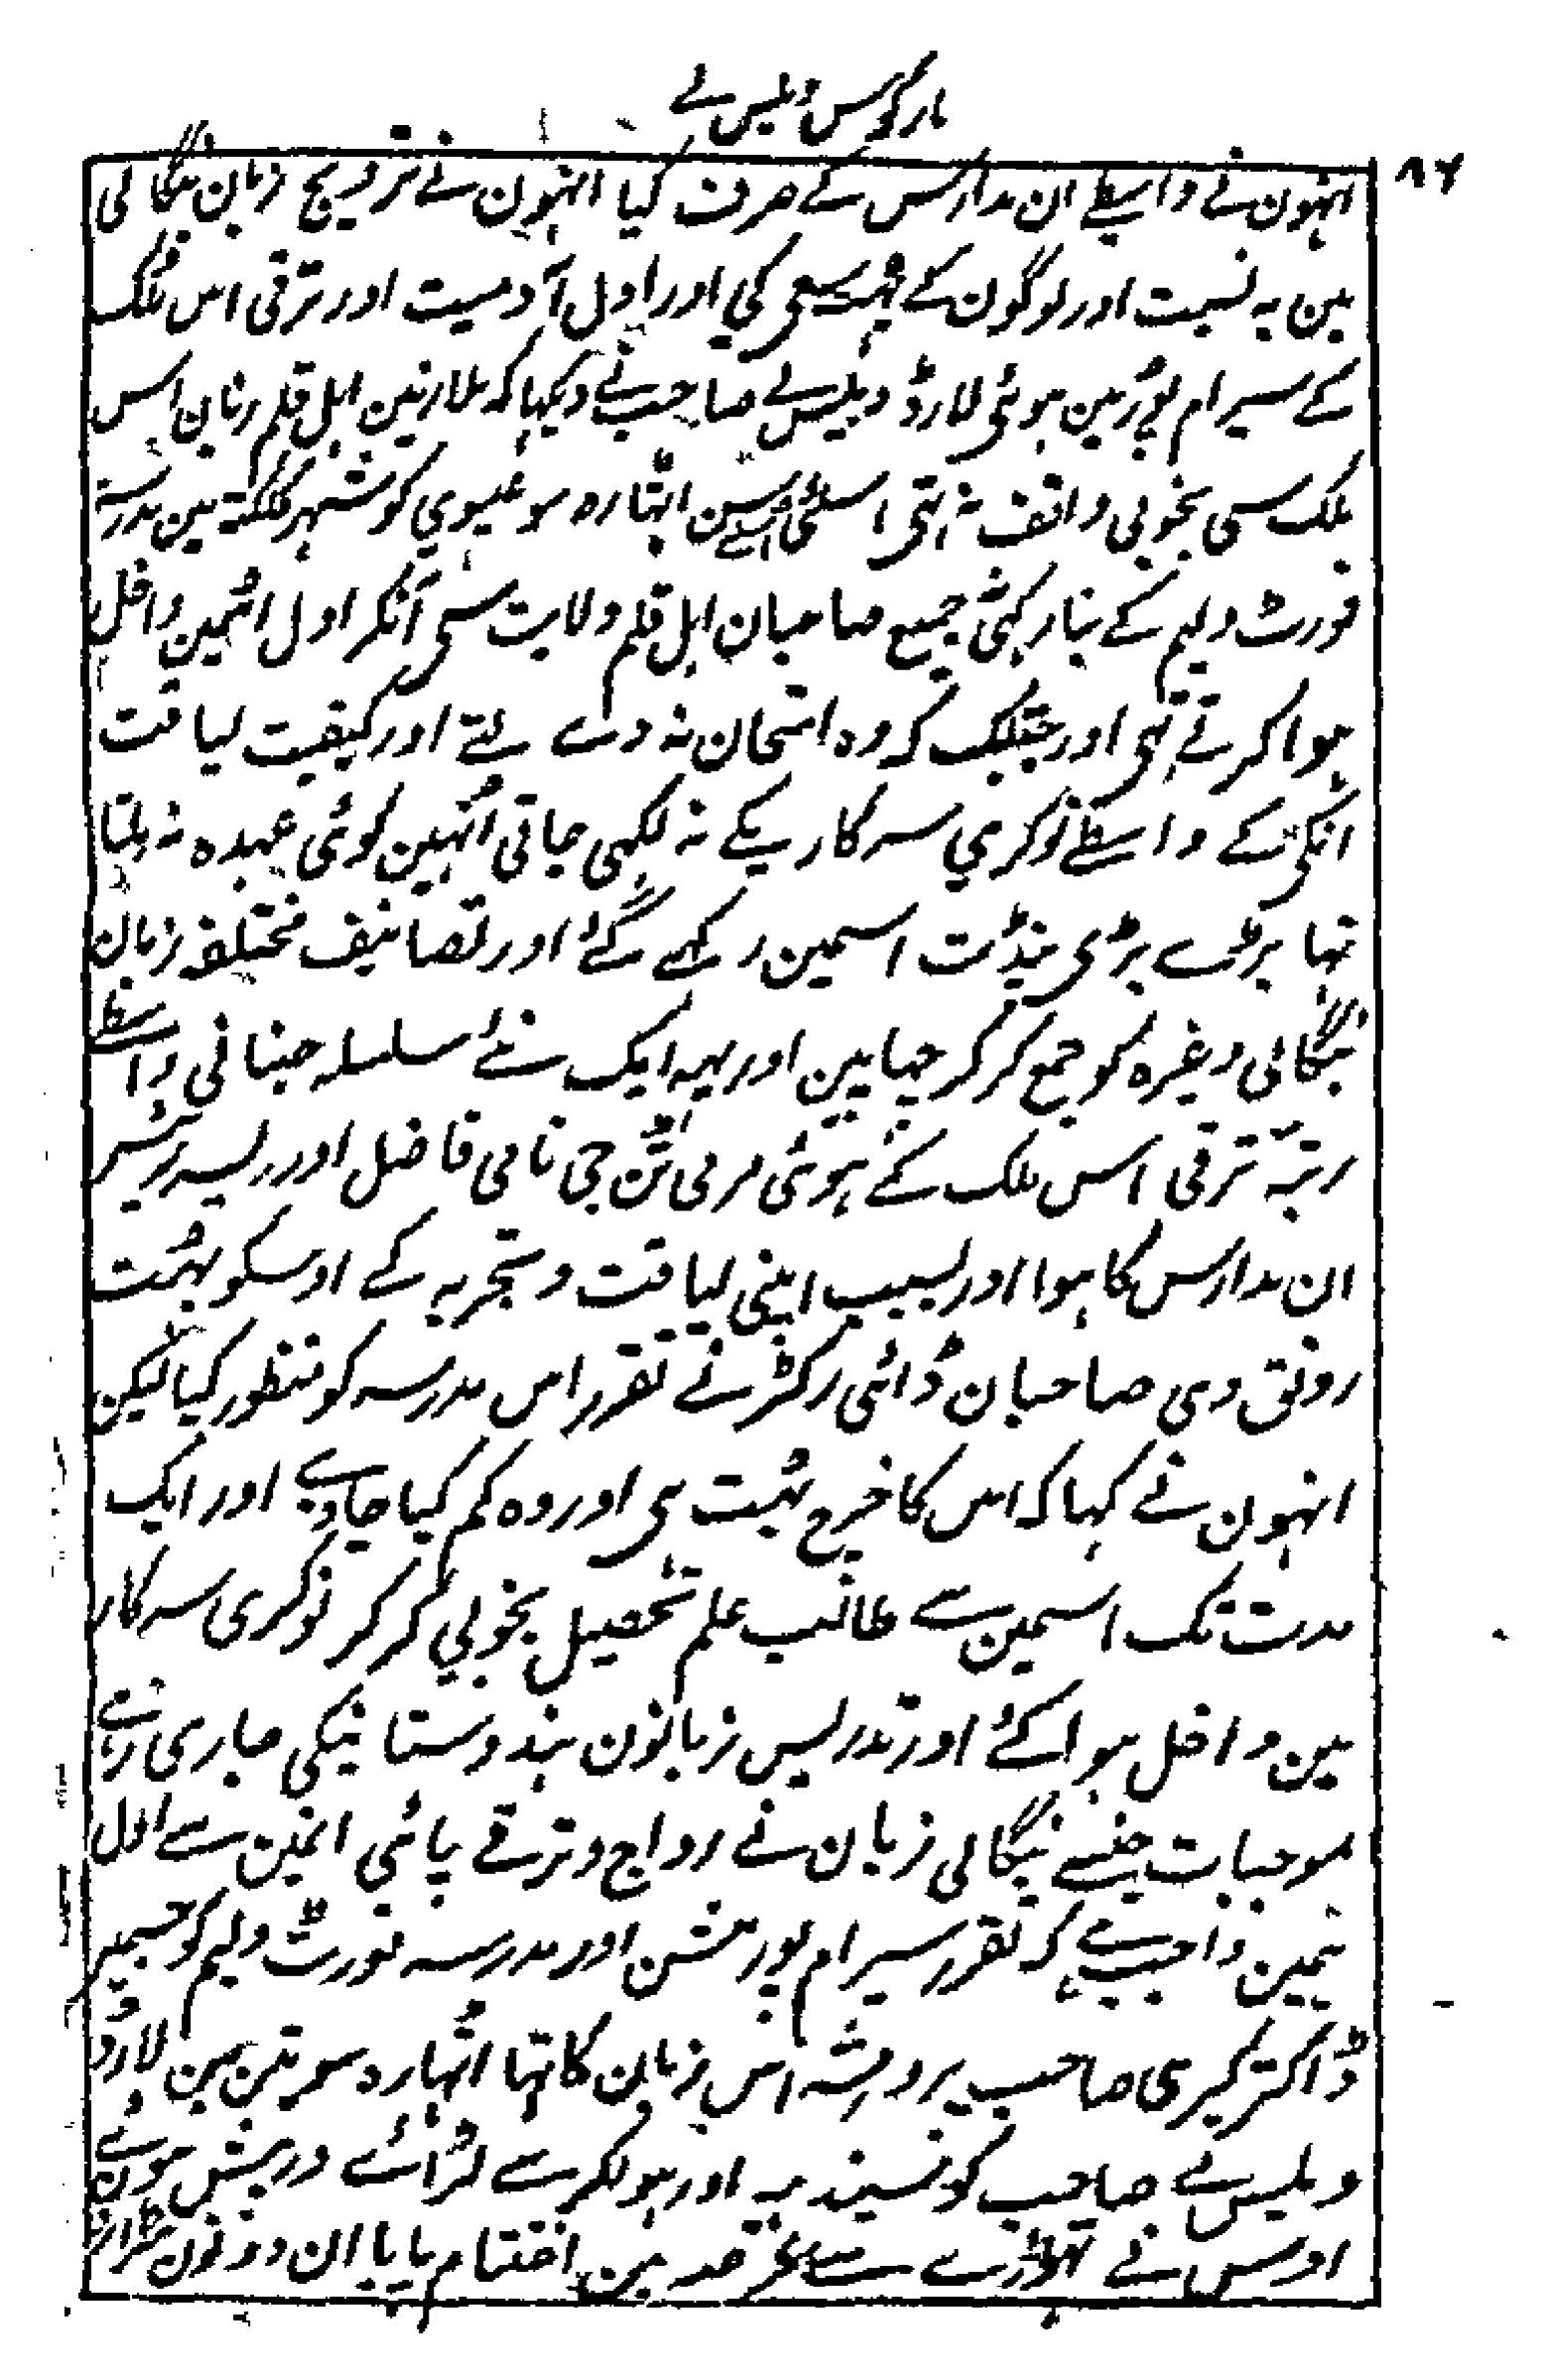 مارکوس ویلیس لے
۸۶
انہون نے واسطے ان مدارس کے صرف کیا انہون نے ترویج زبان بنگالی
مین بہ نسبت اور لوگون کے بہت سعی کی اور اول آدمیت اور ترقی اس ملک
کے سیرام پور مین ہوئی لارڈ ویلیس لے صاحب نے دیکہا کہ ملازمین اہل قلم زبان اس
ملک سی بخوبی واقف نہ تہی اسلئی سن اٹہارہ سو عیسوی کو شہر کلکتہ مین مدرسہ
فورٹ ولیم کے بنا رکہی جمیع صاحبان اہل قلم ولایت سی آنکر اول اسمین داخل
ہوا کرتے تہی اور جبتلک کہ وہ امتحان نہ دے لیتے اور کیفیت لیاقت
انکی کے واسطے نوکری سرکار یکے نہ لکہی جاتی انہین کوئی عہدہ نہ ملتا
تہا بڑے بڑی پنڈت اسمین رکہے گئے اور تصانیف مختلفہ زبان
بنگالی وغیرہ کو جمع کر کر چہاپین اور یہہ ایک نئے سلسلہ جنبانی واسطے
رتبہ ترقی اس ملک کے ہوئی مرمی ٹن جی نامی فاضل اور
ان مدارس کا ہوا اور بسبب اپنی لیاقت و تجربہ کے اوسکو بہت
رونق دی صاحبان ڈائی رکٹر نے تقرر اس مدرسہ کو منظور کیا لیکن
انہون نے کہا کہ اس کا خرچ بہت ہی اور وہ کم کیا جاوے اور ایک
مدت تک اسمین سے طالب علم تحصیل بخوبی کر کر نوکری سرکار
مین داخل ہوا کئے اور تدریس زبانون ہندوستانیکی جاری رہے
موجبات جنسے بنگالی زبان نے رواج و ترقے پائی انمین سے اول
ہمین واجب ہے کہ تقرر سیرام پور مشن اور مدرسہ فورٹ ولیم کو سمجہین
ڈاکتر کیری صاحب سر رشتہ اس زبان کا تہا اٹہارہ سو تین مین لارڈ
ویلیس لے صاحب کو سیندیہ اور ہولکر سے لڑائے درپیش ہوئے
اوس نے تہوڑے سے عرصہ مین اختتام پایا ان دونون